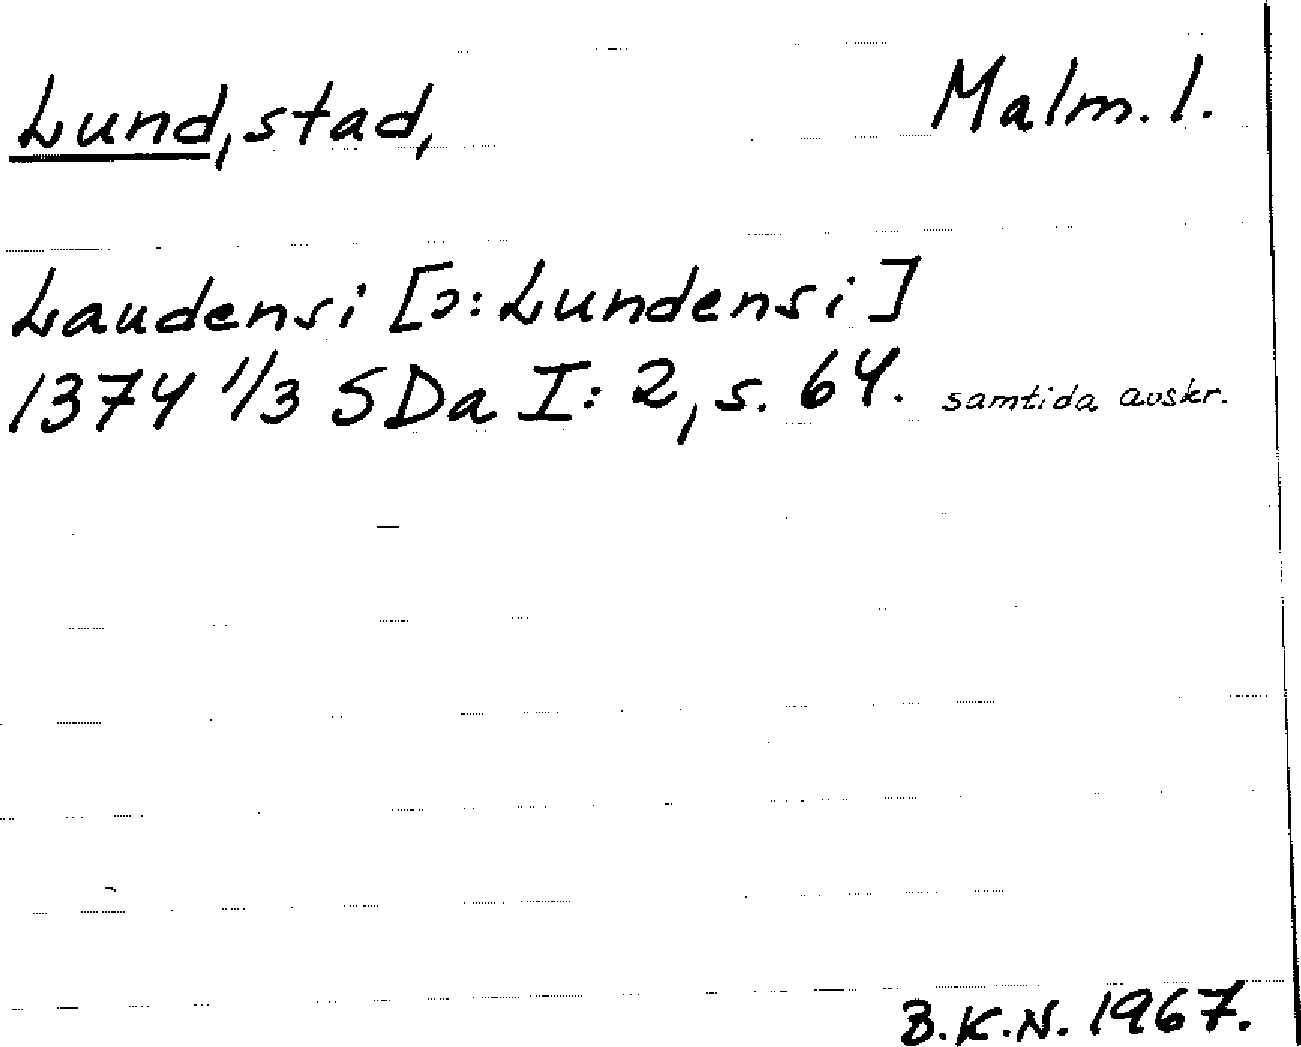 Lund, stad, Malm. l.
Laudensi [ɔ: Lundensi]
1374 1/3 SDa I: 2, s. 64. samtida avskr.
B.K.N. 1967.